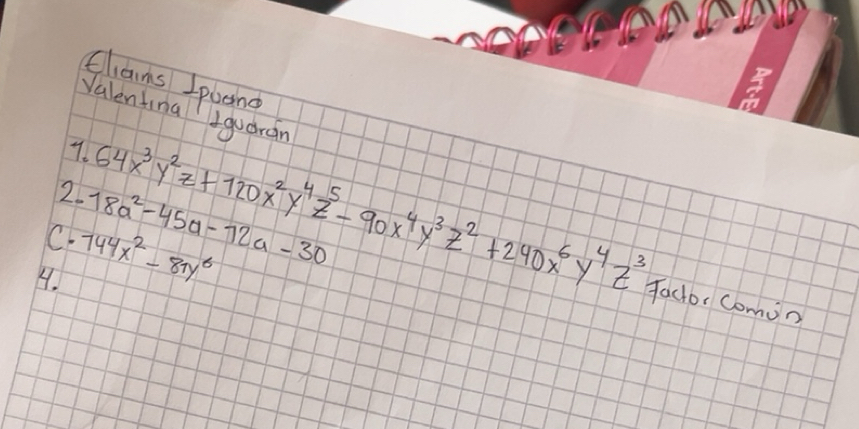 Eliainis Ipuana
Valentina Iguarán
1. 64x³y²z + 120x²y⁴z⁵ - 90x⁴y³z² + 240x⁶y⁴z³ Factor Común
2. 18a² - 45a - 12a - 30
C. 144x² - 81y⁶
4.
Art-E